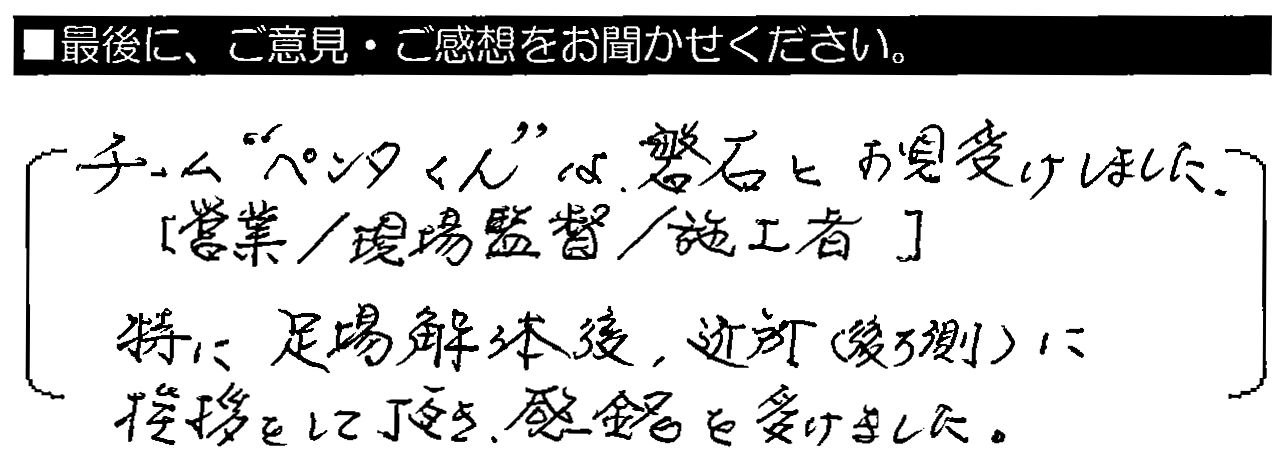 ■最後に、ご意見・ご感想をお聞かせください。
チーム“ペンタくん”は、磐石とお見受けしました、
[営業/現場監督/施工者]
特に足場解体後、近所(後方側)に
挨拶をして頂き、感銘を受けました。